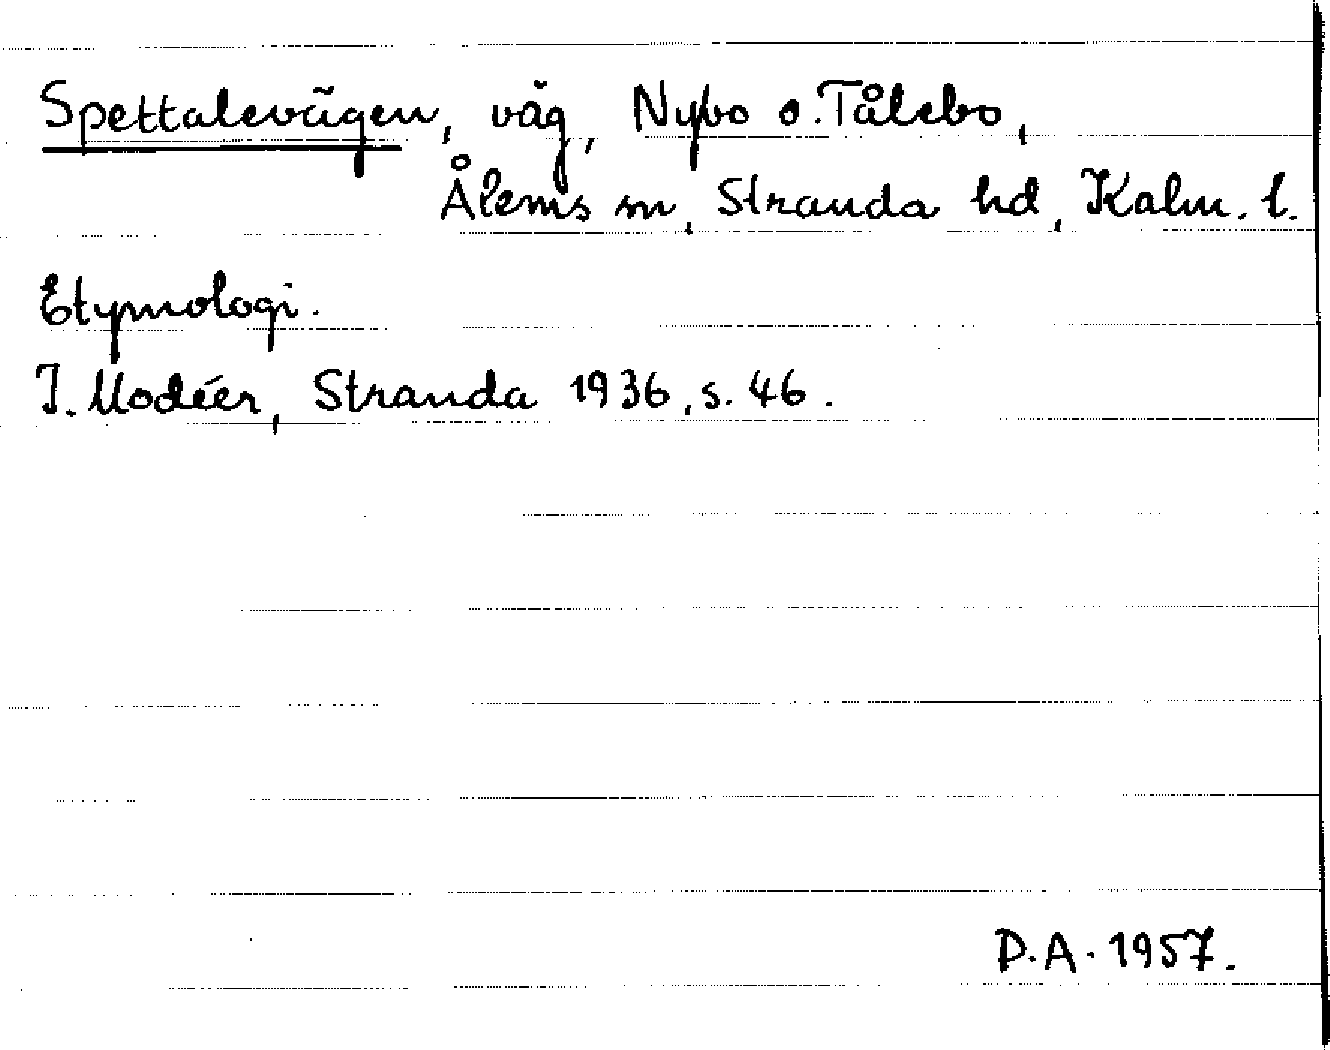 Spettalevägen, väg, Nybo o. Tålebo,
Ålems sn, Stranda hd, Kalm. l.
Etymologi.
I. Modéer, Stranda 1936, s. 46.
D.A. 1957.